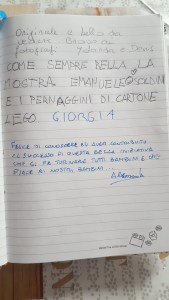 Originale e bello da
vedere Bravo ai
fotografi Yolanda e
COME SEMPRE BELLA LA
MOSTRA. EMANUELE SOLDINI
E I PERSONAGGINI DI CARTONE
LEGO. GIORGIA
FELICE DI CONOSCERE ED AVER CONTRIBUITO
AL SUCCESSO DI QUESTA BELLA INIZIATIVA
CHE CI FA TORNARE TUTTI BAMBINI E CHE
PIACE AI NOSTRI BAMBINI...